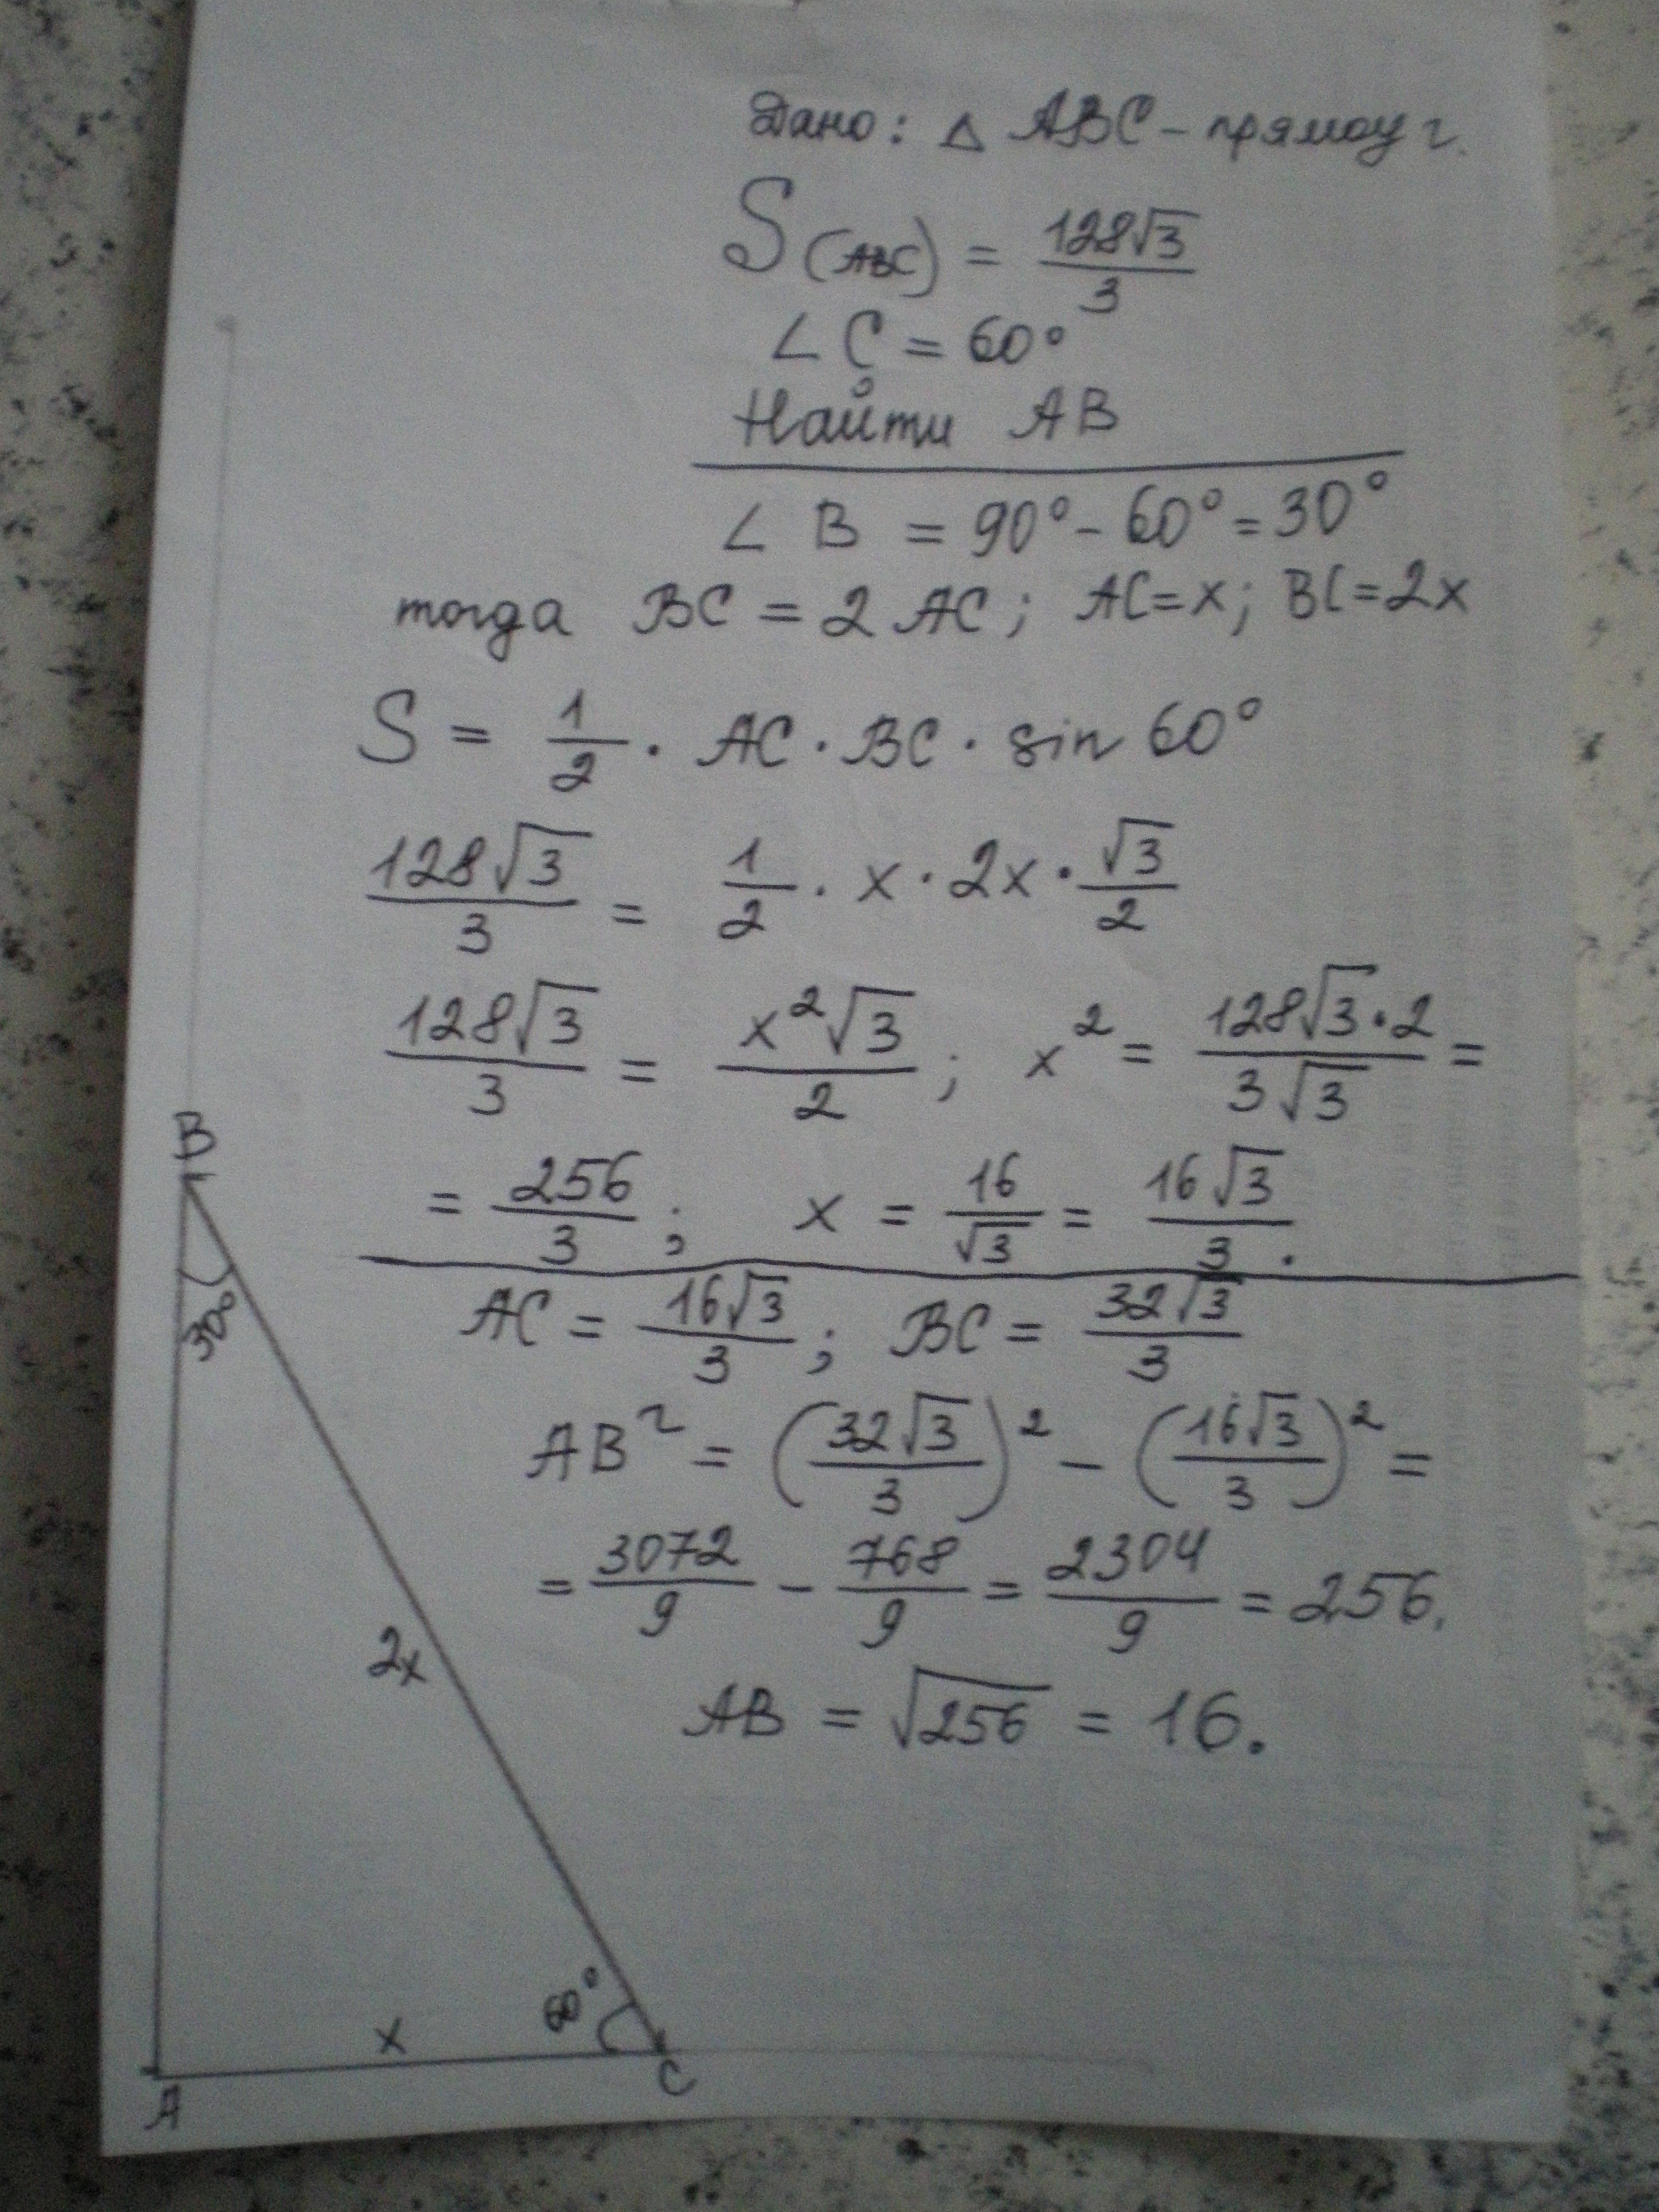 Дано: △ ABC – прямоуг.
S(ABC) = 128√3/3
∠ C = 60°
Найти AB
∠ B = 90° – 60° = 30°
тогда BC = 2 AC; AC = x; BC = 2x
S = 1/2 · AC · BC · sin 60°
128√3/3 = 1/2 · x · 2x · √3/2
128√3/3 = x²√3/2; x² = 128√3·2/3√3 =
= 256/3; x = 16/√3 = 16√3/3.
AC = 16√3/3; BC = 32√3/3
AB² = (32√3/3)² – (16√3/3)² =
= 3072/9 – 768/9 = 2304/9 = 256.
AB = √256 = 16.
B
30°
2x
60°
x
A
C